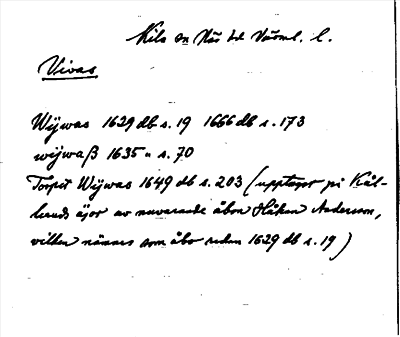 Kils sn Kils hd Värml. l.
Vivas
Wijwas 1629 db s. 19 1666 db s. 173
wijwaß 1635 " s. 70
Torpet Wijwas 1649 db s. 203 (upptaget på Käl-
lunds ägor av nuvarande åbon Håkan Andersson,
vilken nämnes som åbo redan 1629 db s. 19)